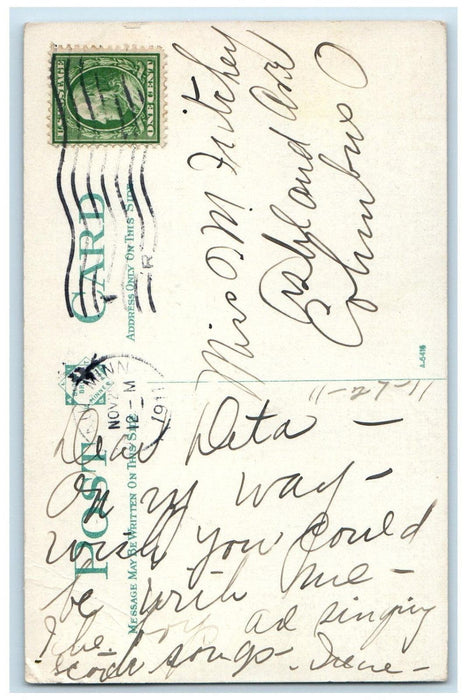 U.S. POSTAGE
ONE CENT
POST CARD
ADDRESS ONLY ON THIS SIDE
MESSAGE MAY BE WRITTEN ON THIS SIDE
MINN
NOV
12-M
1911
A-5416
Miss O M Fritchey
Ashland Ave
Columbus O
11-27-11
Dear Deta -
On my way -
wish you could
be with me -
The boys singing
songs - Irene -